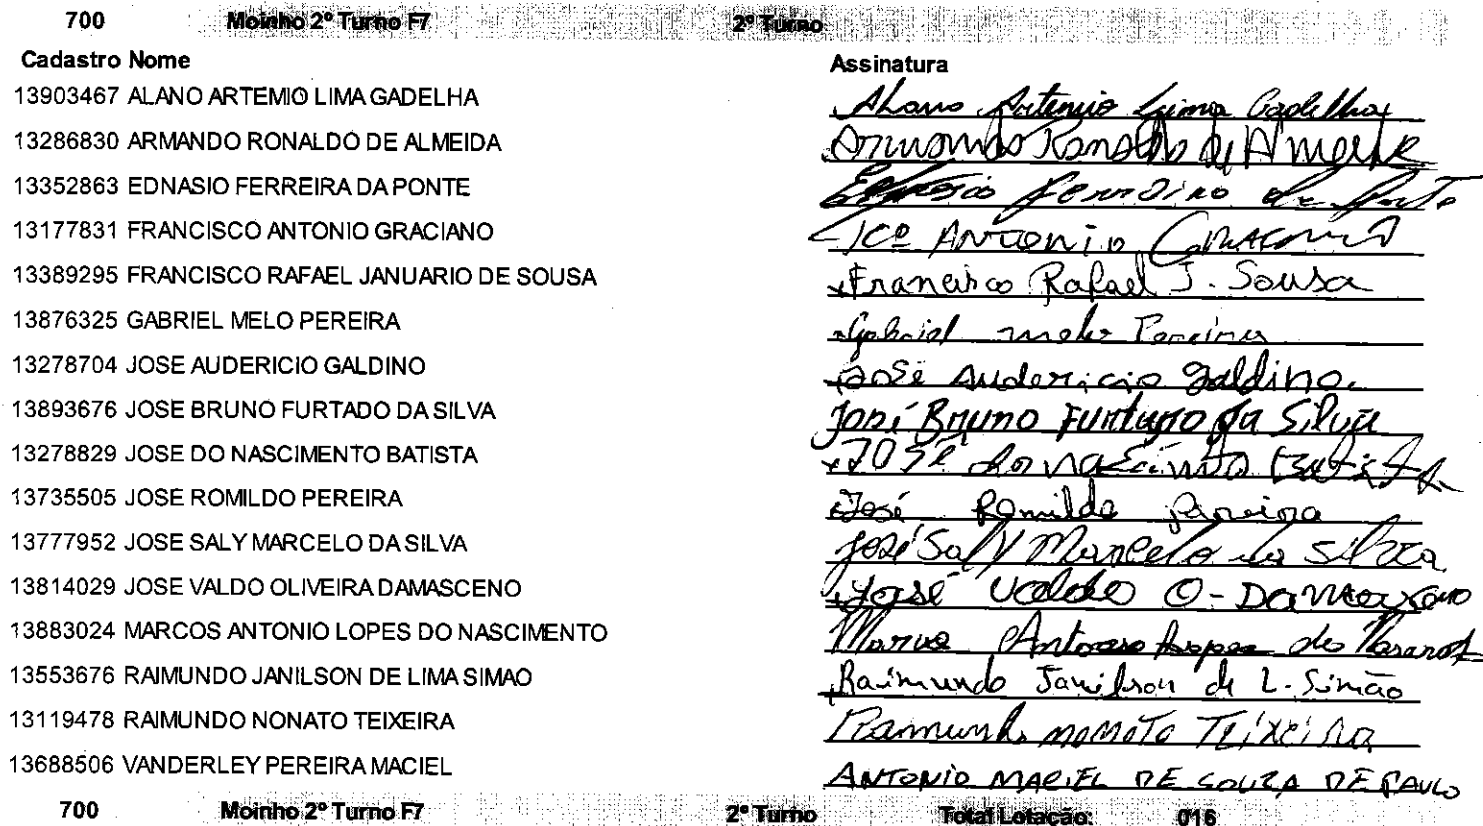 700 Moinho 2º Turno F7 2º Turno
Cadastro Nome Assinatura
13903467 ALANO ARTEMIO LIMA GADELHA Alano Artemio Lima Gadelha
13286830 ARMANDO RONALDO DE ALMEIDA Armando Ronaldo de Almeida
13352863 EDNASIO FERREIRA DA PONTE Ednasio Ferreira da Ponte
13177831 FRANCISCO ANTONIO GRACIANO Fcº ANTONIO GRACIANO
13389295 FRANCISCO RAFAEL JANUARIO DE SOUSA Francisco Rafael J. Sousa
13876325 GABRIEL MELO PEREIRA Gabriel melo Pereira
13278704 JOSE AUDERICIO GALDINO José Audericio galdino.
13893676 JOSE BRUNO FURTADO DA SILVA José Bruno Furtado da Silva
13278829 JOSE DO NASCIMENTO BATISTA José do nascimento Batista
13735505 JOSE ROMILDO PEREIRA José Romildo Pereira
13777952 JOSE SALY MARCELO DA SILVA José Saly Marcelo da Silva
13814029 JOSE VALDO OLIVEIRA DAMASCENO José Valdo O- Damasceno
13883024 MARCOS ANTONIO LOPES DO NASCIMENTO Marcos Antonio Lopes do
13553676 RAIMUNDO JANILSON DE LIMA SIMAO Raimundo Janilson de L. Simão
13119478 RAIMUNDO NONATO TEIXEIRA Raimundo nonato Teixeira
13688506 VANDERLEY PEREIRA MACIEL ANTONIO MACIEL DE SOUZA DE PAULO
700 Moinho 2º Turno F7 2º Turno Total Lotação: 016